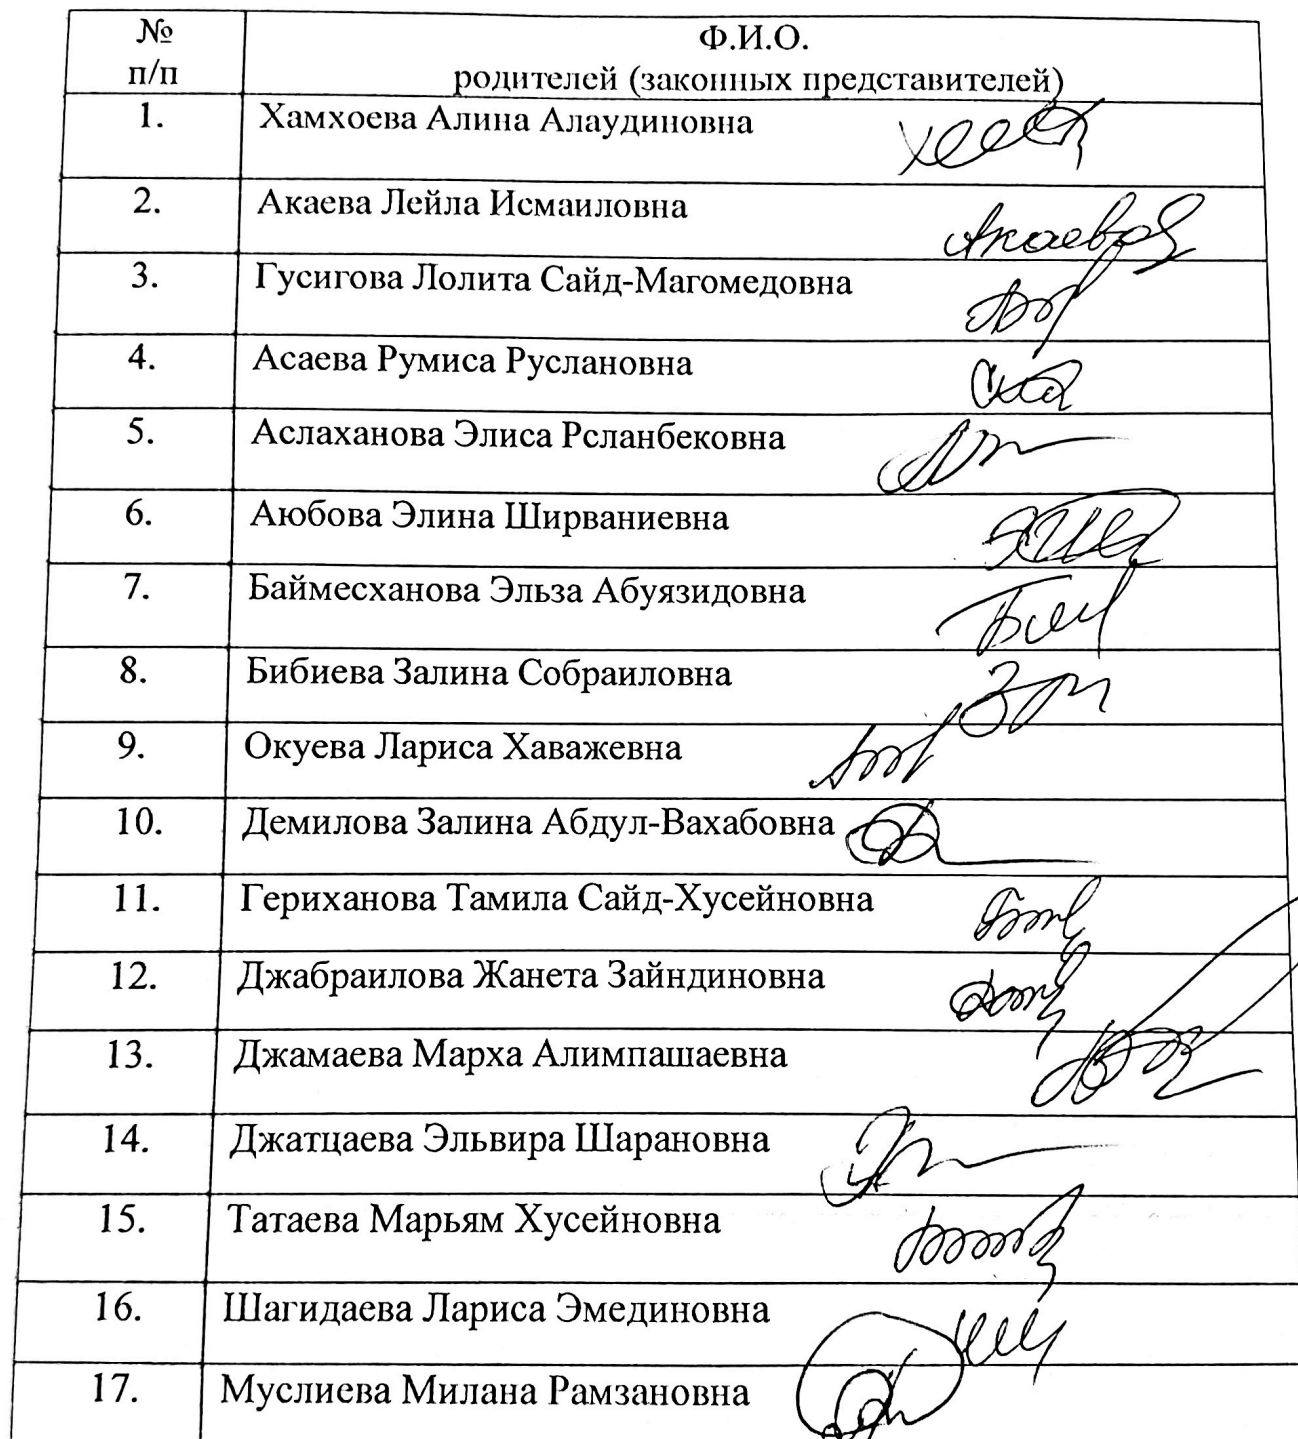 №
п/п
Ф.И.О.
родителей (законных представителей)
1. Хамхоева Алина Алаудиновна
2. Акаева Лейла Исмаиловна Акаева
3. Гусигова Лолита Сайд-Магомедовна
4. Асаева Румиса Руслановна
5. Аслаханова Элиса Рсланбековна
6. Аюбова Элина Ширваниевна
7. Баймесханова Эльза Абуязидовна
8. Бибиева Залина Собраиловна
9. Окуева Лариса Хаважевна
10. Демилова Залина Абдул-Вахабовна
11. Гериханова Тамила Сайд-Хусейновна
12. Джабраилова Жанета Зайндиновна
13. Джамаева Марха Алимпашаевна
14. Джатцаева Эльвира Шарановна
15. Татаева Марьям Хусейновна
16. Шагидаева Лариса Эмединовна
17. Муслиева Милана Рамзановна